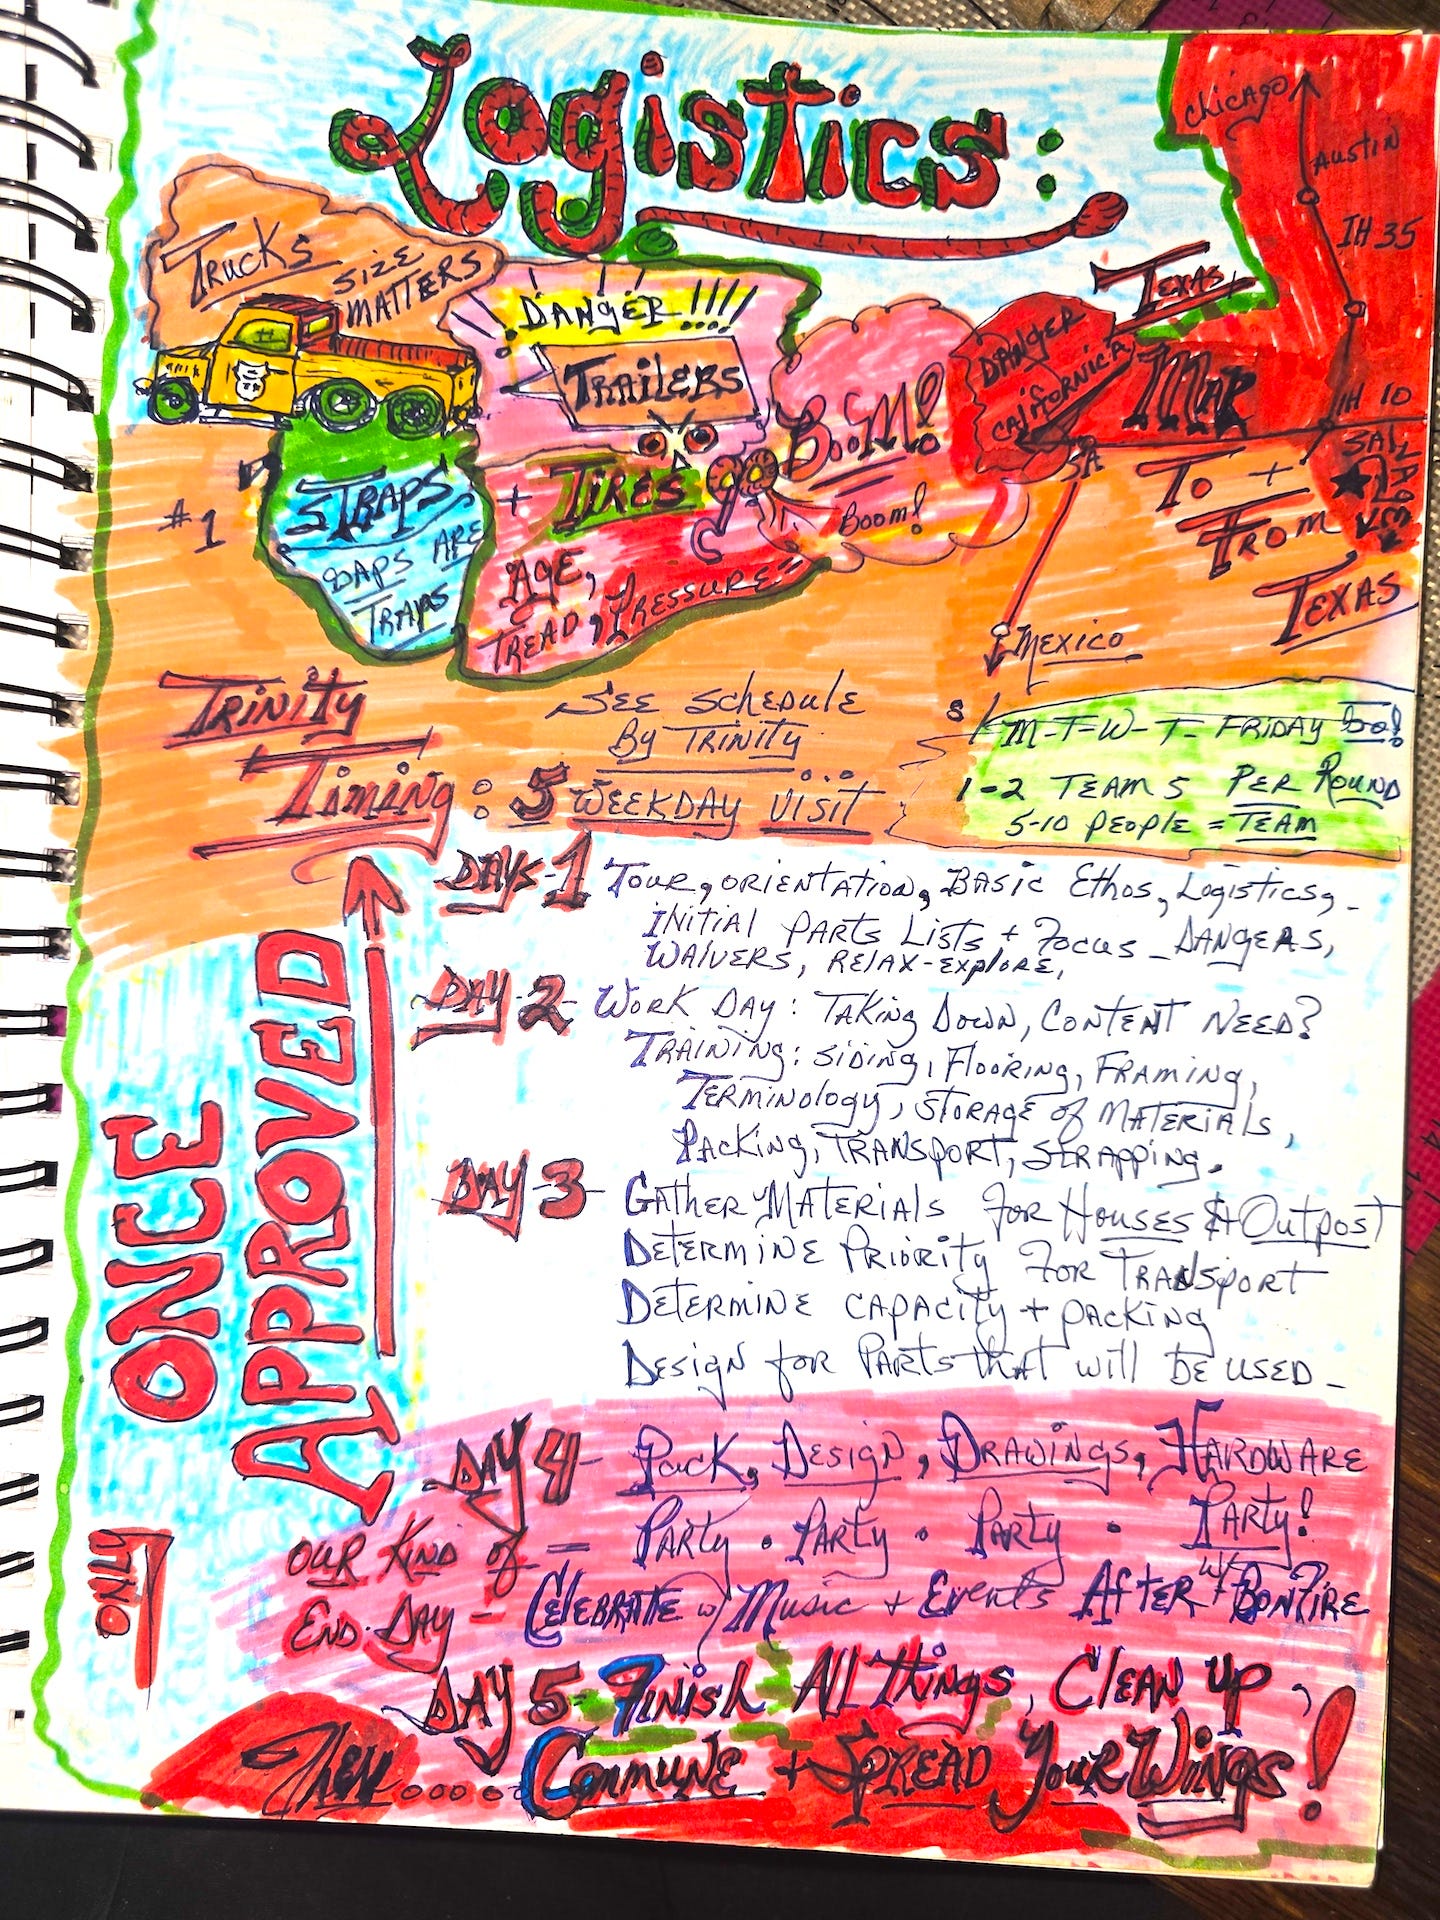 Logistics:
Trucks
Size
Matters
Danger!!!!
Trailers
+ Tires
Age,
Tread, Pressure
Boom!
Boom!
#1
Straps
Gaps are
Traps
Chicago
Austin
IH 35
IH 10
Texas
Map
To +
From
Texas
Danger
Californica
SA
Mexico
Trinity
Timing: 5 Weekday Visit...
See Schedule
By Trinity
M-T-W-T- Friday Too!
1-2 Teams Per Round
5-10 People = Team
Only
Once
Approved
Days-1 Tour, orientation, Basic Ethos, Logistics,-
initial Parts Lists + Focus - Dangers,
Waivers, Relax-explore,
Day-2- Work Day: Taking Down, Content Need?
Training: Siding, Flooring, Framing,
Terminology, Storage of Materials,
Packing, Transport, Strapping.
Day-3- Gather Materials for Houses & Outpost
Determine Priority For Transport
Determine Capacity + packing
Design for Parts that will be used-
Day 4- Pack, Design, Drawings, Hardware
Our Kind of = Party • Party • Party • Party!
End-Day - Celebrate w/ Music + Events After w/ Bonfire
Day 5- Finish All Things, Clean up,
Then..... Commune + Spread Your Wings!